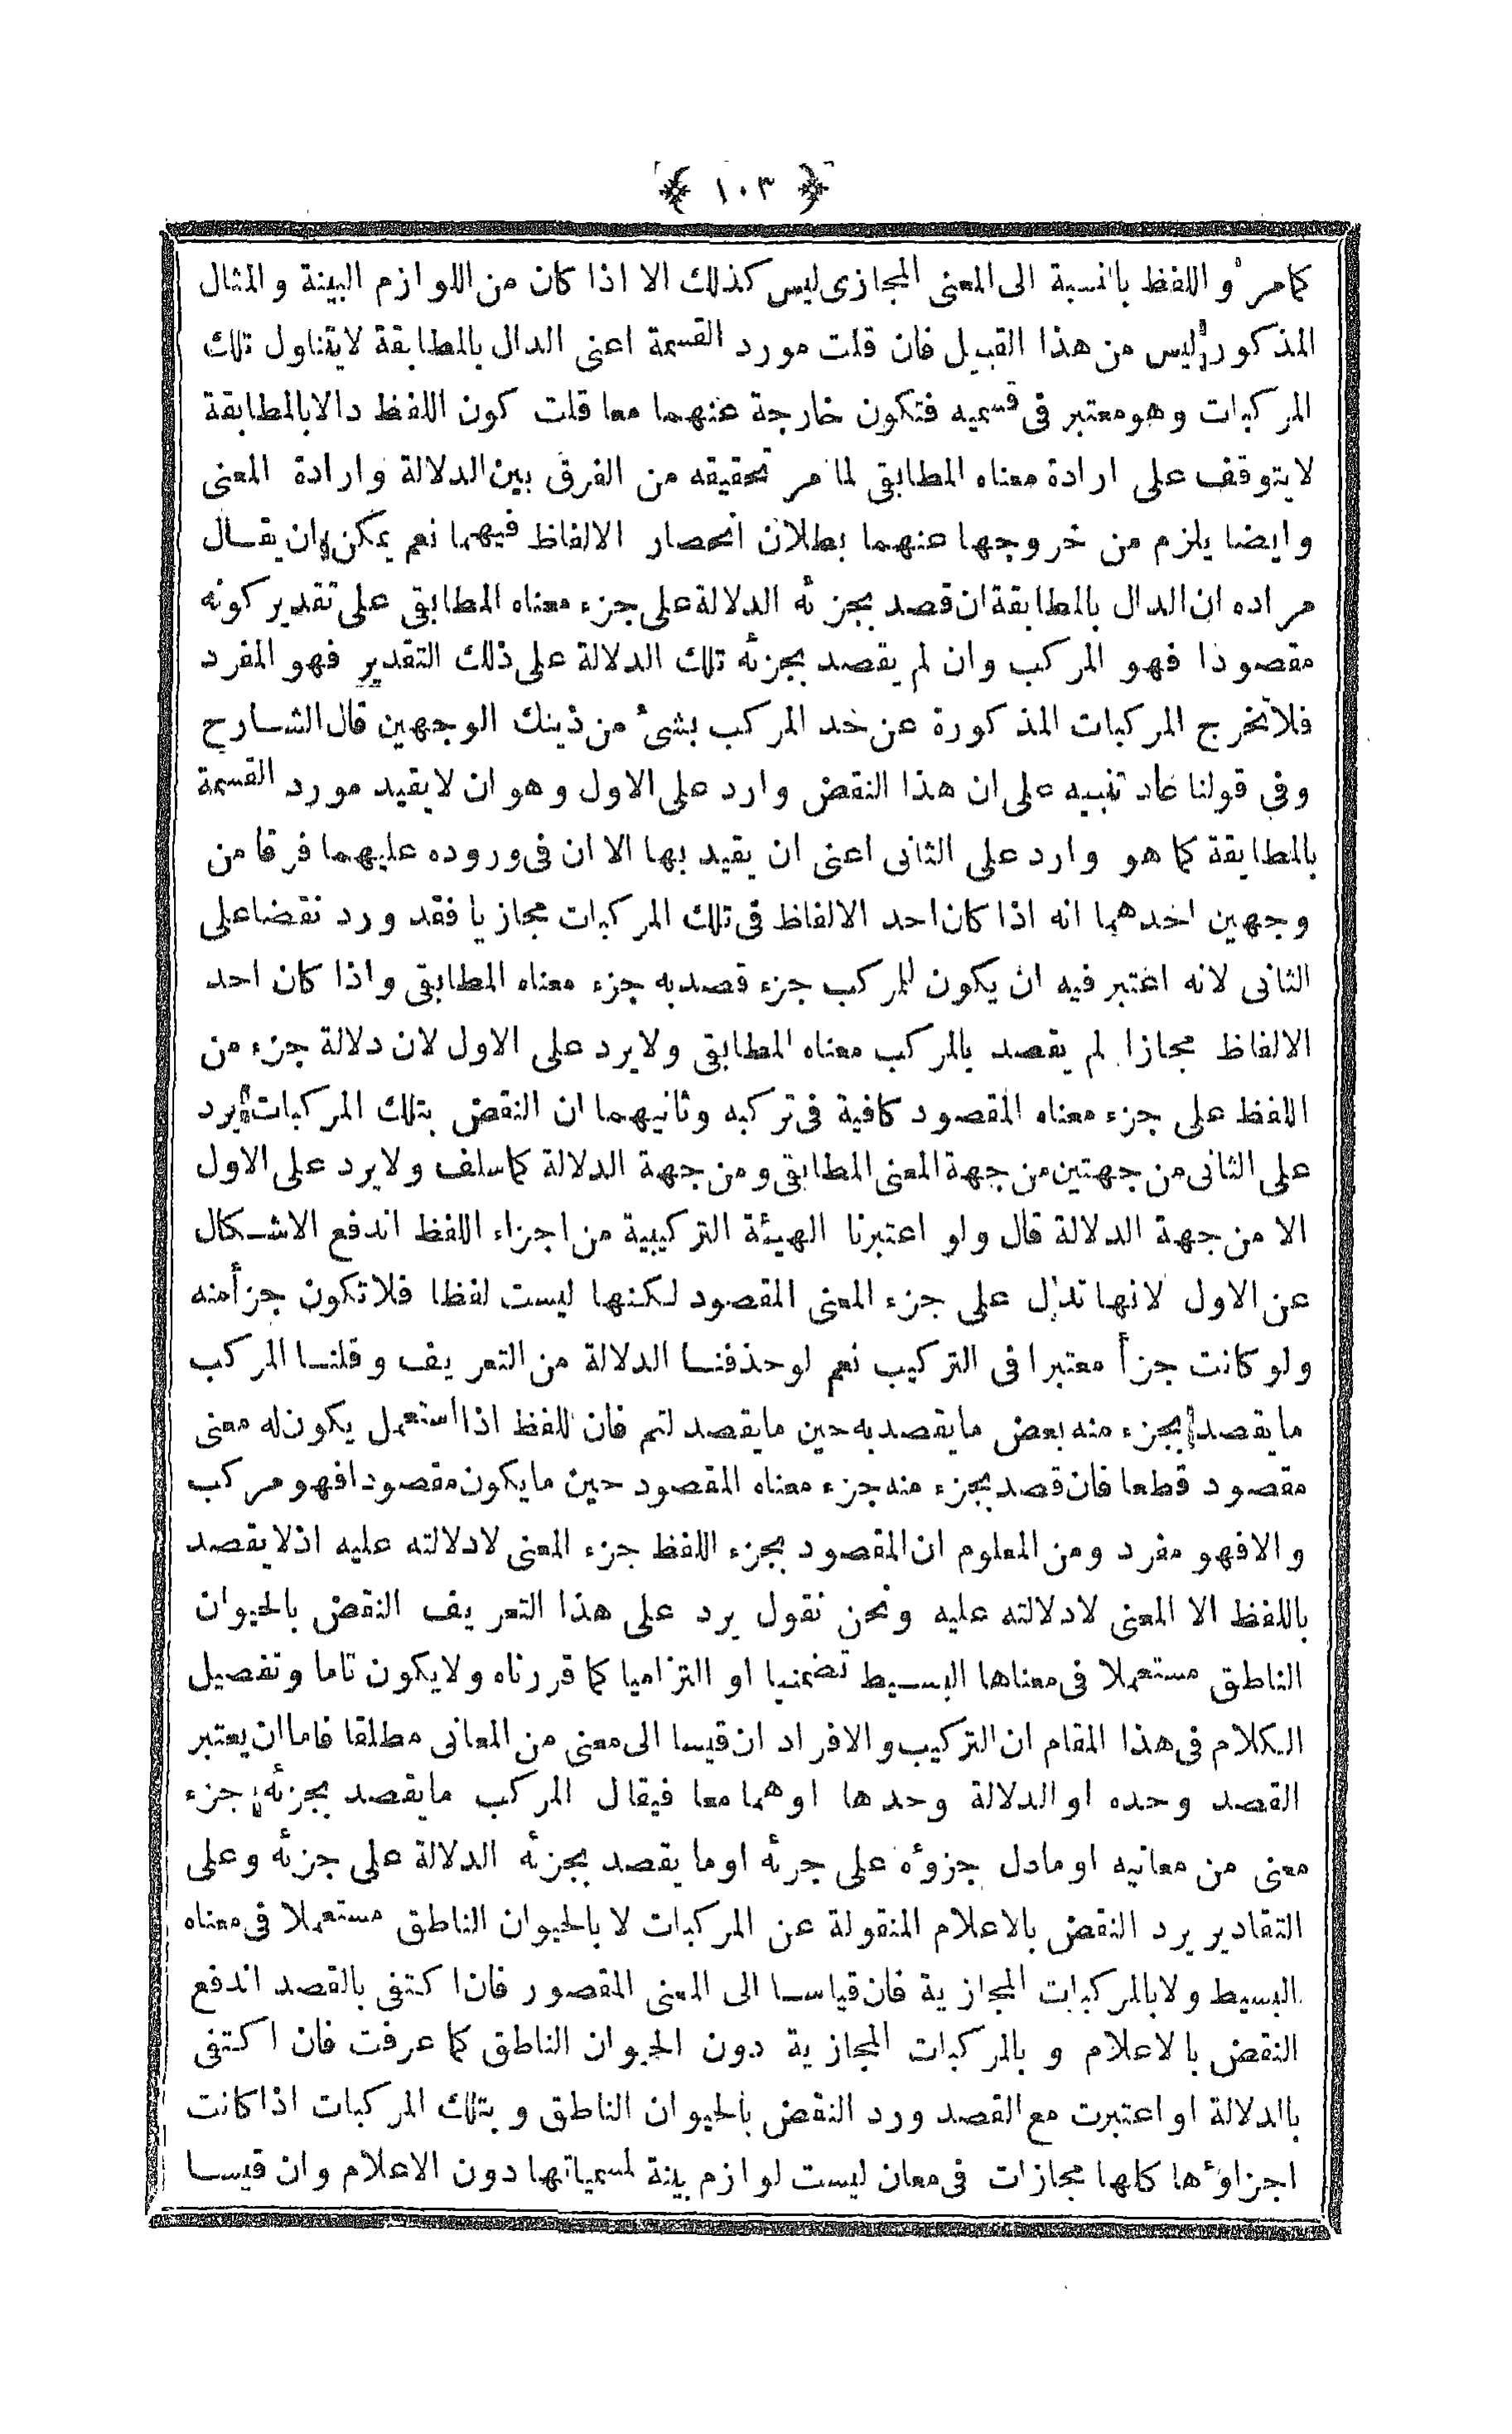 ﴿ ١٠٣ ﴾
كمامر واللفظ بالنسبة الى المعنى المجازى ليس كذلك الا اذا كان من اللوازم البينة والمثال
المذكور ليس من هذا القبيل فان قلت مورد القسمة اعنى الدال بالمطابقة لايتناول تلك
المركبات وهو معتبر فى قسميه فتكون خارجة عنهما معا قلت كون اللفظ دالا بالمطابقة
لايتوقف على ارادة معناه المطابقى لما مر تحقيقه من الفرق بين الدلالة وارادة المعنى
وايضا يلزم من خروجها عنهما بطلان انحصار الالفاظ فيهما نعم يمكن ان يقال
مراده ان الدال بالمطابقة ان قصد بجزئه الدلالة على جزء معناه المطابقى على تقدير كونه
مقصودا فهو المركب وان لم يقصد بجزئه تلك الدلالة على ذلك التقدير فهو المفرد
فلا تخرج المركبات المذكورة عن حد المركب بشئ من ذينك الوجهين قال الشارح
وفى قولنا عاد تنبيه على ان هذا النقض وارد على الاول وهو ان لايقيد مورد القسمة
بالمطابقة كما هو وارد على الثانى اعنى ان يقيد بها الا ان فى وروده عليهما فرقا من
وجهين احدهما انه اذا كان احد الالفاظ فى تلك المركبات مجازيا فقد ورد نقضا على
الثانى لانه اعتبر فيه ان يكون للمركب جزء قصد به جزء معناه المطابقى واذا كان احد
الالفاظ مجازا لم يقصد بالمركب معناه المطابقى ولايرد على الاول لان دلالة جزء من
اللفظ على جزء معناه المقصود كافية فى تركبه وثانيهما ان النقض بتلك المركبات يرد
على الثانى من جهتين من جهة المعنى المطابقى ومن جهة الدلالة كما سلف ولايرد على الاول
الا من جهة الدلالة قال ولو اعتبرنا الهيئة التركيبية من اجزاء اللفظ اندفع الاشكال
عن الاول لانها تدل على جزء المعنى المقصود لكنها ليست لفظا فلا تكون جزأ منه
ولو كانت جزأ معتبرا فى التركيب نعم لو حذفنا الدلالة من التعريف وقلنا المركب
مايقصد بجزء منه بعض مايقصد به حين مايقصد لتم فان للفظ اذا استعمل يكون له معنى
مقصود قطعا فان قصد بجزء منه جزء معناه المقصود حين مايكون مقصودا فهو مركب
والا فهو مفرد ومن المعلوم ان المقصود بجزء اللفظ جزء المعنى لادلالته عليه اذلا يقصد
باللفظ الا المعنى لادلالته عليه ونحن نقول يرد على هذا التعريف النقض بالحيوان
الناطق مستعملا فى معناها البسيط تضمنيا او التزاميا كما قررناه ولايكون تاما وتفصيل
الكلام فى هذا المقام ان التركيب والافراد ان قيسا الى معنى من المعانى مطلقا فاما ان يعتبر
القصد وحده او الدلالة وحدها او هما معا فيقال المركب مايقصد بجزئه جزء
معنى من معانيه او مادل جزوه على جزئه او ما يقصد بجزئه الدلالة على جزئه وعلى
التقادير يرد النقض بالاعلام المنقولة عن المركبات لا بالحيوان الناطق مستعملا فى معناه
البسيط ولا بالمركبات المجازية فان قياسا الى المعنى المقصور فان اكتفى بالقصد اندفع
النقض بالاعلام وبالمركبات المجازية دون الحيوان الناطق كما عرفت فان اكتفى
بالدلالة او اعتبرت مع القصد ورد النقض بالحيوان الناطق وبتلك المركبات اذا كانت
اجزاؤها كلها مجازات فى معان ليست لوازم بينة لمسمياتها دون الاعلام وان قيسا